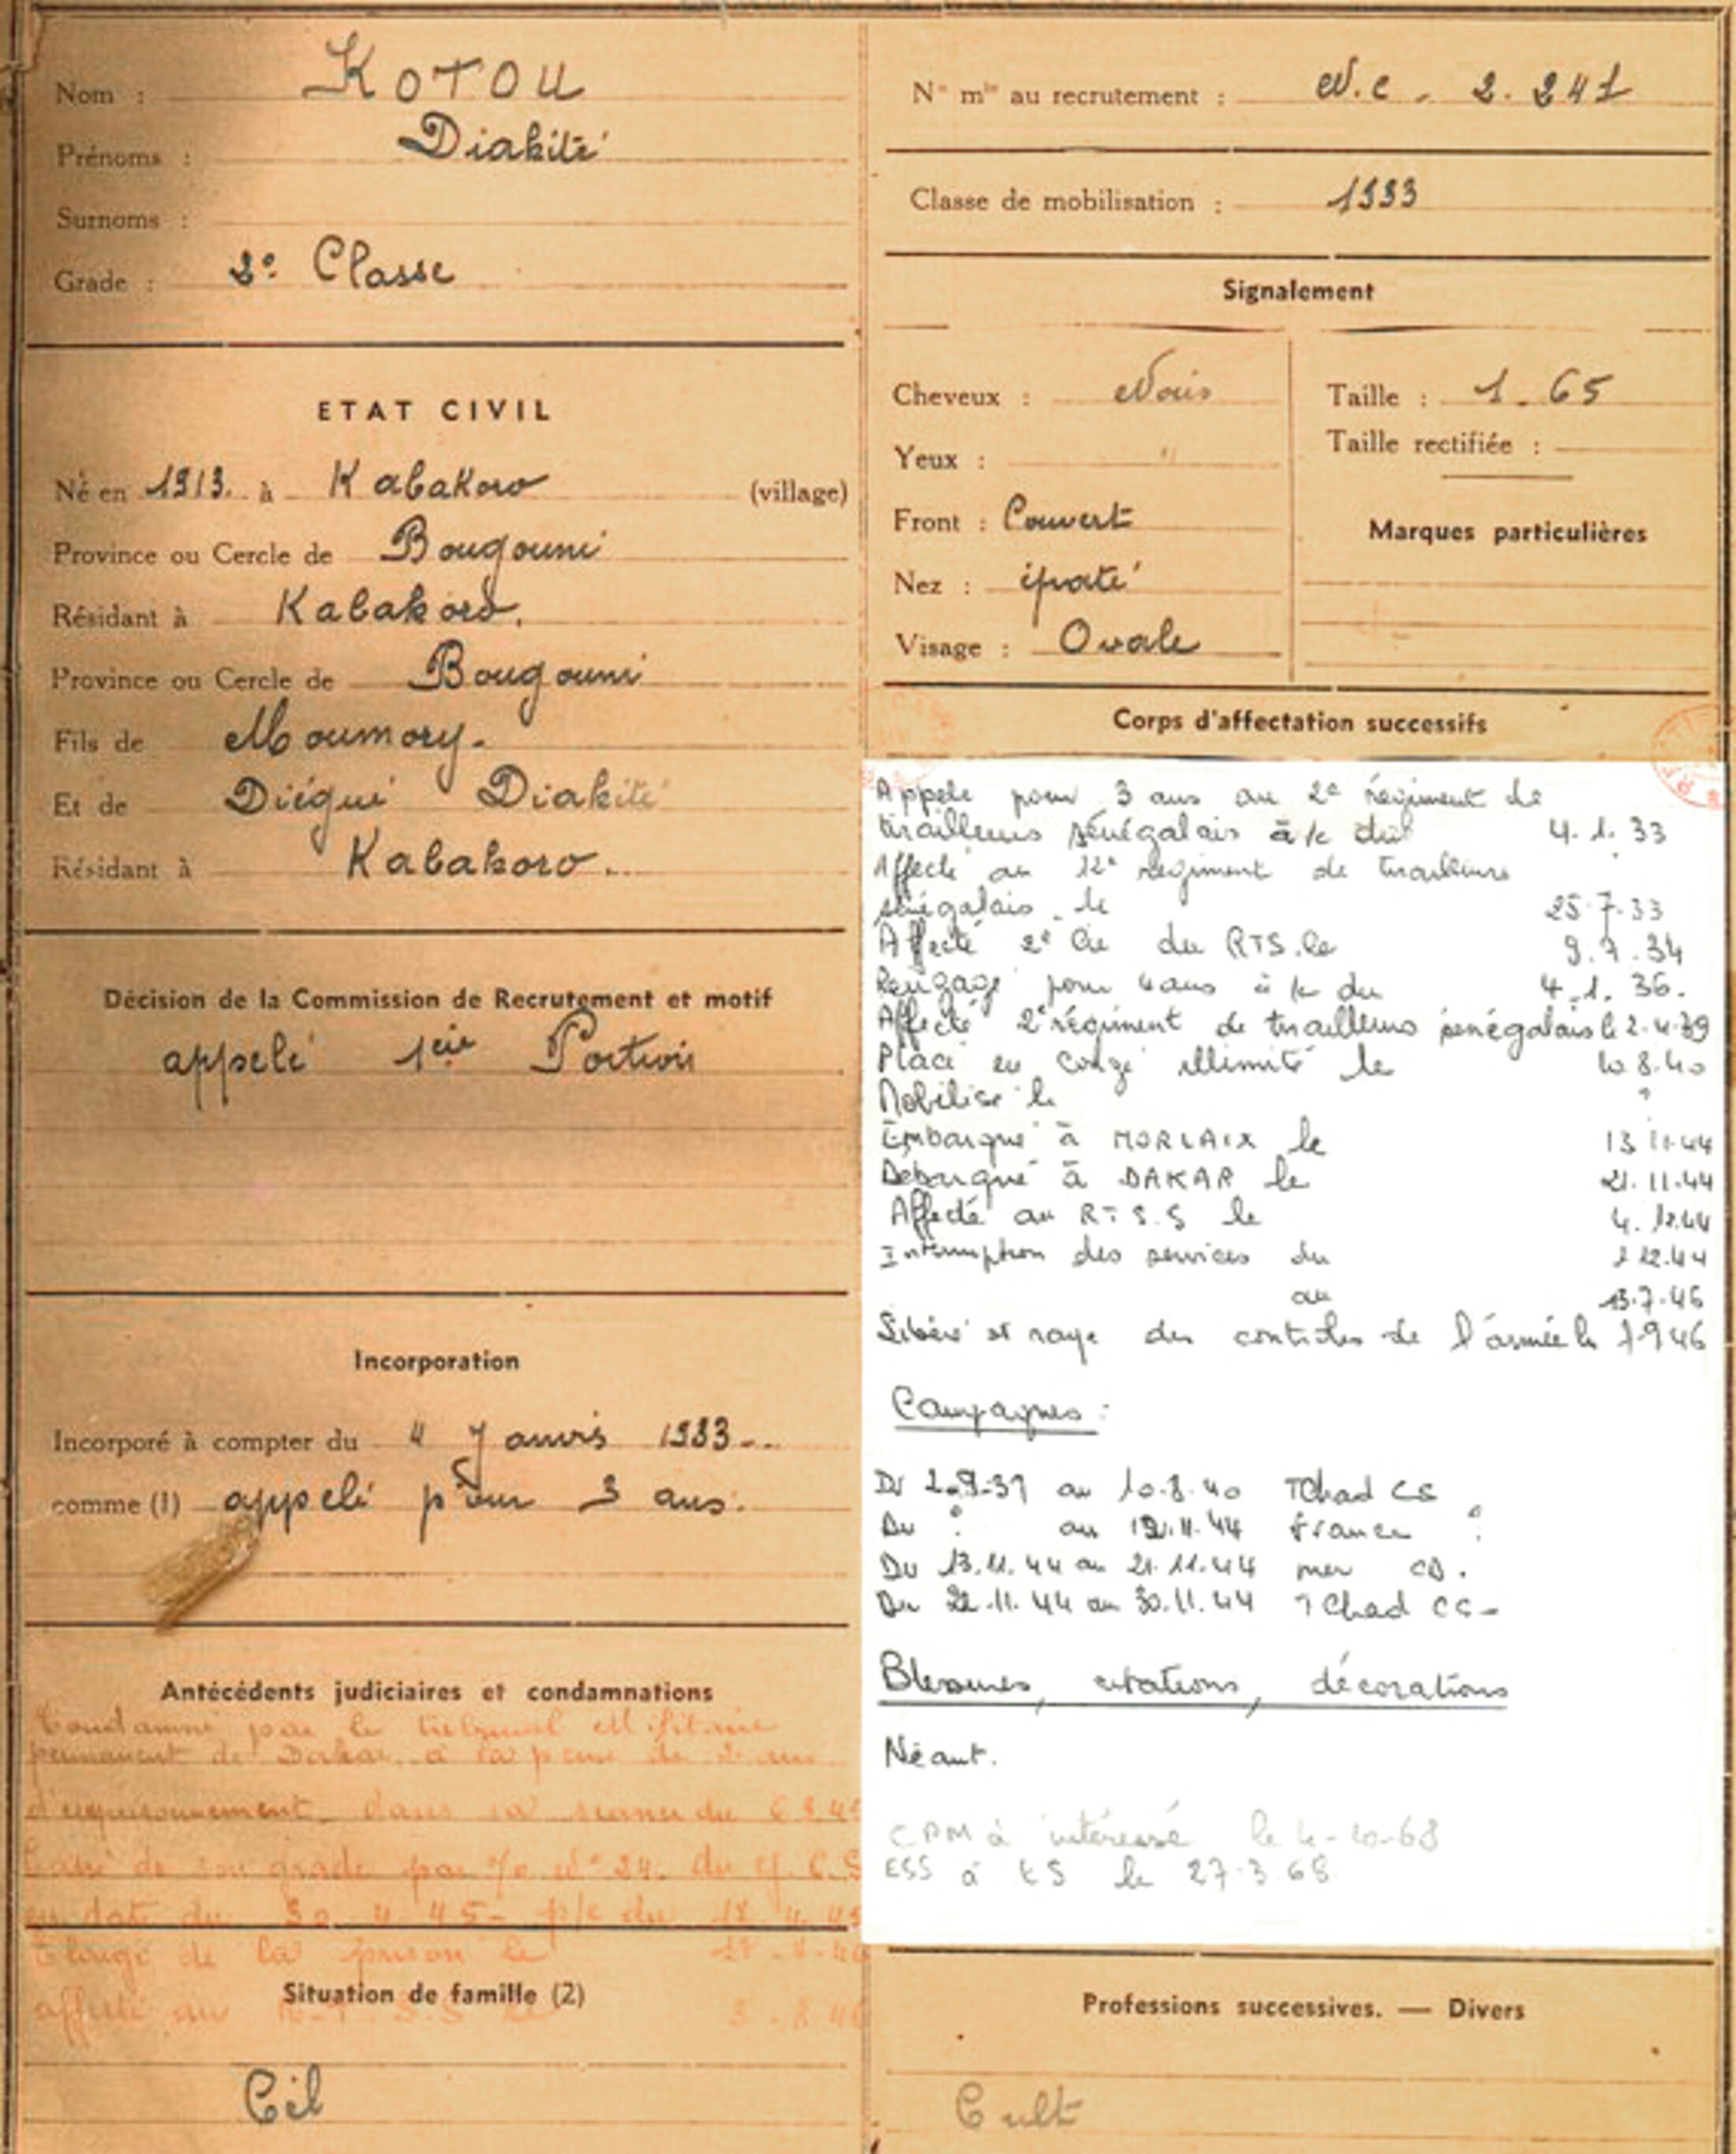 Nom : KOTOU
Prénoms : Diakité
Surnoms :
Grade : 2e Classe
ETAT CIVIL
Né en 1913. à Kabakoro (village)
Province ou Cercle de Bougouni
Résidant à Kabakoro.
Province ou Cercle de Bougouni
Fils de Moumory.
Et de Diégui Diakité
Résidant à Kabakoro..
Décision de la Commission de Recrutement et motif
appelé 1ère Portion
Incorporation
Incorporé à compter du 4 Janvier 1933
comme (1) appelé pour 3 ans.
Antécédents judiciaires et condamnations
Condamné par le tribunal Militaire
permanent de Dakar, à la peine de 2 ans
d'emprisonnement dans sa séance du
Cassé de son grade par N° 24. du
en date du 30 4 45 - p/c du
Elargi de la prison le
affecté au R.T.S.S le
Situation de famille (2)
Cél
N° mle au recrutement : N.C - 2.241
Classe de mobilisation : 1933
Signalement
Cheveux : Noirs
Yeux : "
Front : Couvert
Nez : épaté
Visage : Ovale
Taille : 1.65
Taille rectifiée :
Marques particulières
Corps d'affectation successifs
Appelé pour 3 ans au 2e régiment de
tirailleurs sénégalais à/c du 4.1.33
Affecté au 12e régiment de tirailleurs
sénégalais le 25.7.33
Affecté 2e Cie du RTS. le 9.7.34
Rengagé pour 4 ans à/c du 4.1.36.
Affecté 2e régiment de tirailleurs sénégalais le 2.4.39
Placé en congé illimité le 10.8.40
Mobilisé le ?
Embarqué à MORLAIX le 13.11.44
Débarqué à DAKAR le 21.11.44
Affecté au RTSS le 4.12.44
Interruption des services du 1.12.44
au 13.7.46
Libéré et rayé des contrôles de l'armée le 1.9.46
Campagnes :
au 10.8.40 Tchad CS
Du ? au 12.11.44 France ?
Du 13.11.44 au 21.11.44 mer CD.
Du 22.11.44 au 30.11.44 Tchad CS-
Blessures, citations, décorations
Néant.
CPM à intéressé le 4-10-68
ESS à ES le 27.3.68
Professions successives. — Divers
Cult